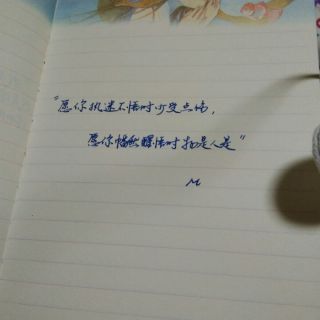 “愿你执迷不悟时少受点伤，
愿你幡然醒悟时物是人是”
M